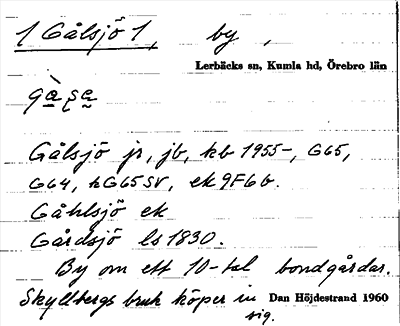 1 Gålsjö 1, by,
Lerbäcks sn, Kumla hd, Örebro län
Gålsjö jr, jb, kb 1955-, G65,
G64, hG65SV, ek 9F6b.
Gåhlsjö ek
Gårdsjö ls 1830.
By om ett 10-tal bondgårdar.
Skyllbergs bruk köper in
sig.
Dan Höjdestrand 1960